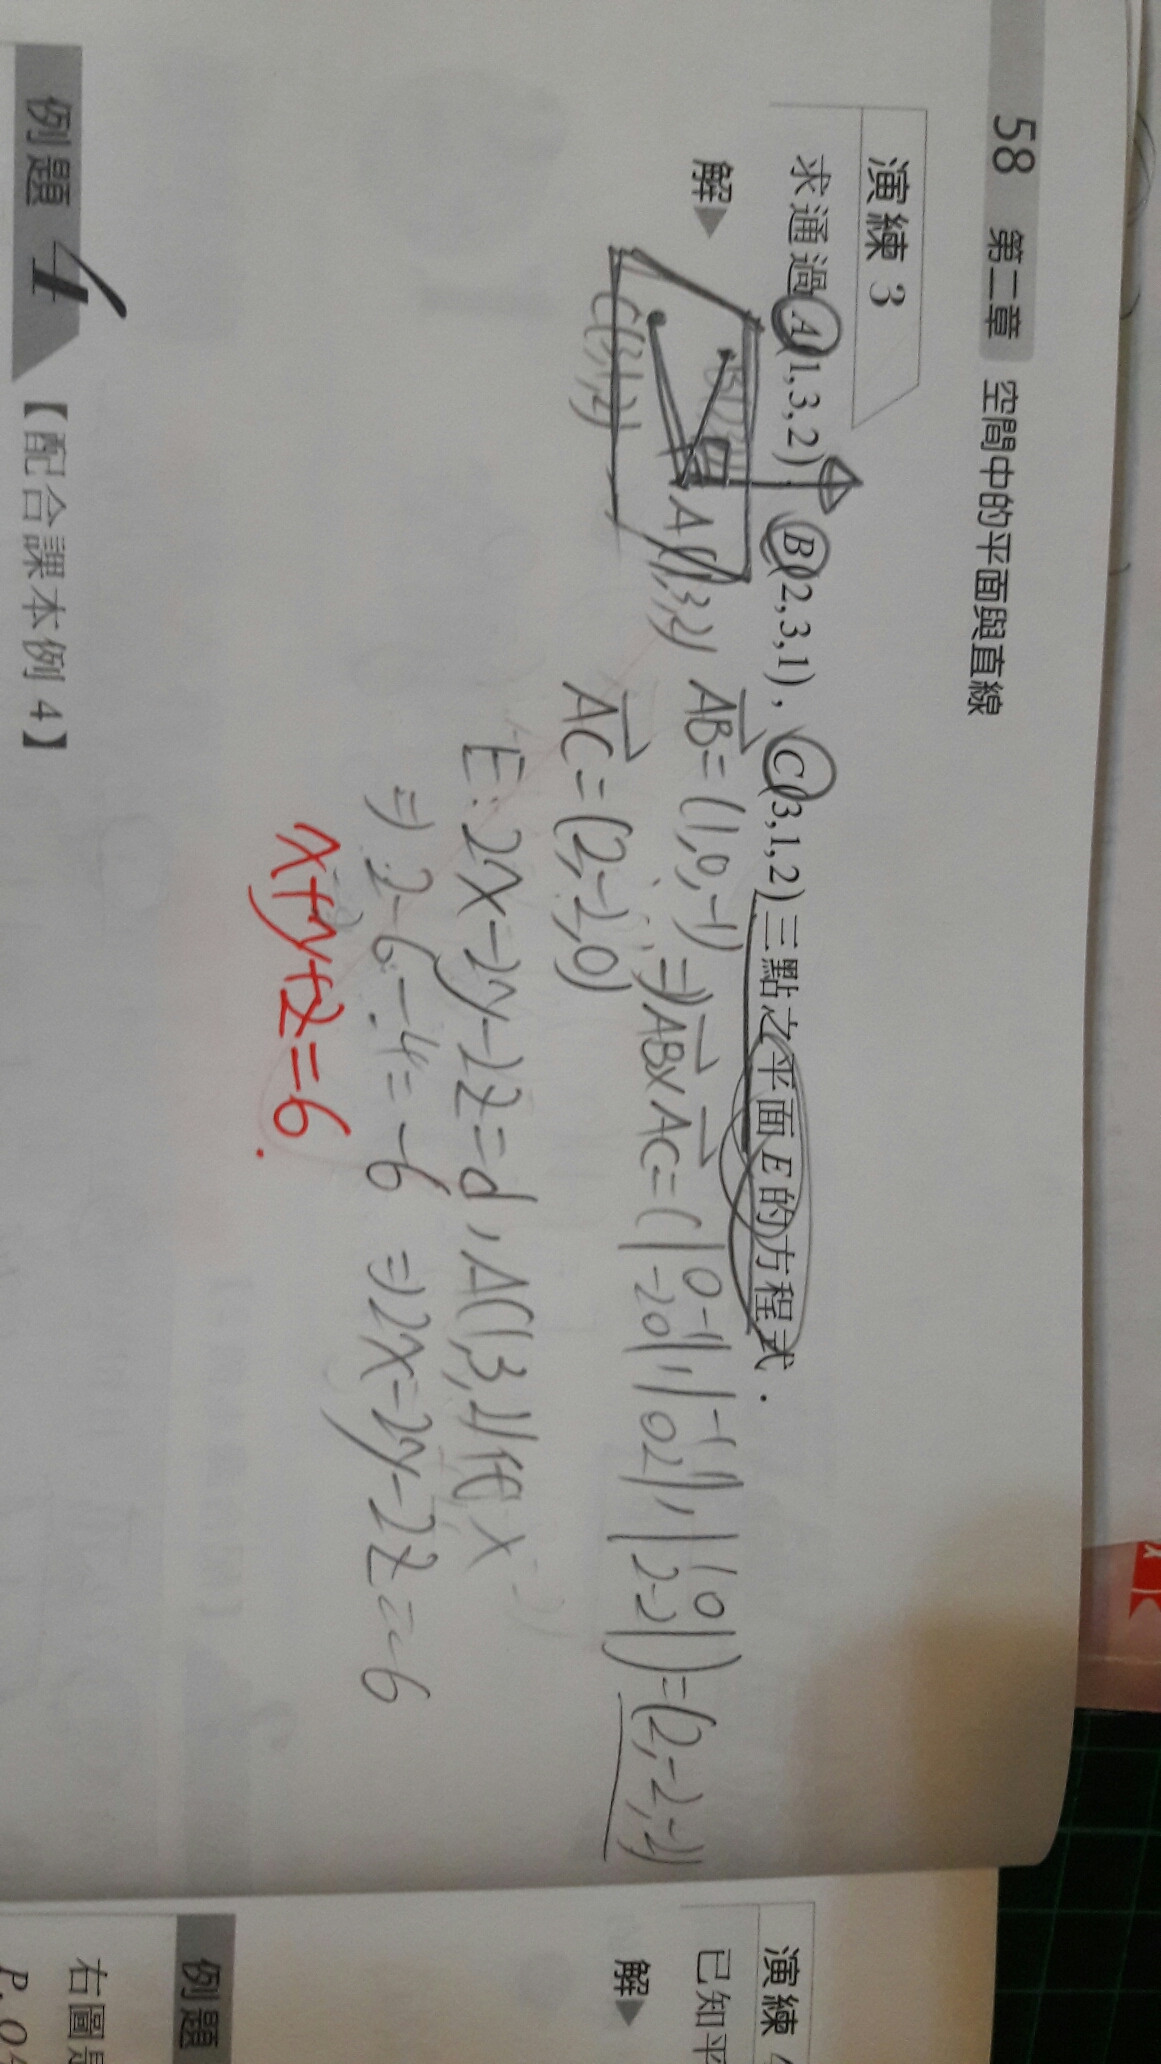 58 第二章 空間中的平面與直線
演練 3
求通過A(1,3,2), B(2,3,1), C(3,1,2)三點之平面E的方程式.
解▶
A(1,3,2)
C(3,1,2)
AB=(1,0,-1) ⇒AB×AC=(|0 -1|, |-1 1|, |1 0|)=(2,-2,-2)
|-2 0| |0 2| |2 -2|
AC=(2,-2,0)
E:2x-2y-2z=d, A(1,3,2)代x
⇒2-6-4=-6 ⇒2x-2y-2z=-6
x+y+z=6.
例題 4 【配合課本例4】
演練
已知平
解▶
例題
右圖是